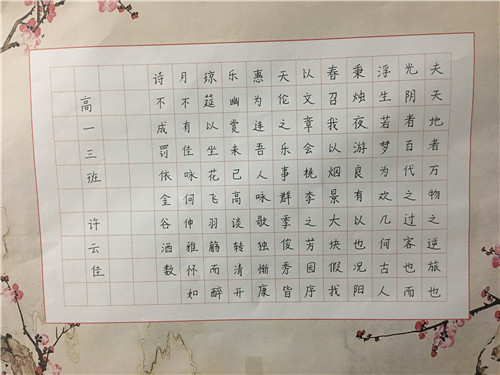 夫天地者万物之逆旅也
光阴者百代之过客也而
浮生若梦为欢几何古人
秉烛夜游良有以也况阳
春召我以烟景大块假我
以文章会桃李之芳园序
天伦之乐事群季俊秀皆
惠为连吾人咏歌独惭康
乐幽赏未已高谈转清开
琼筵以坐花飞羽觞而醉
月不有佳咏何伸雅怀如
诗不成罚依金谷酒数
高一三班 许云佳